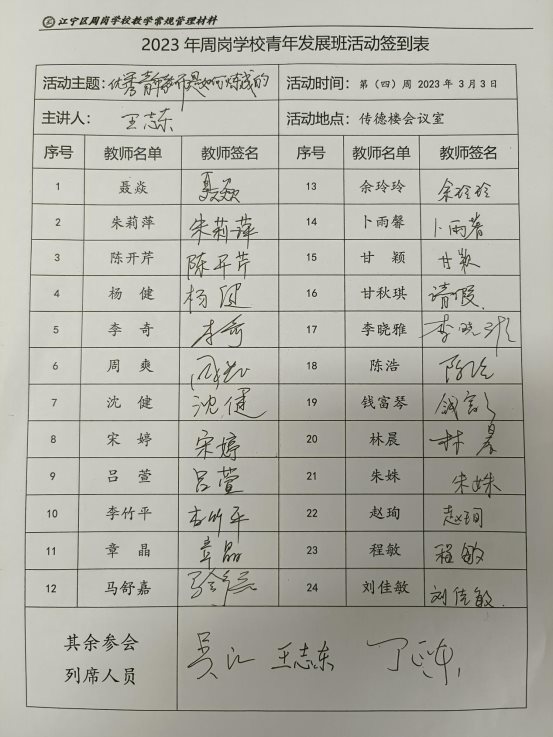 江宁区周岗学校教学常规管理材料
2023年周岗学校青年发展班活动签到表
活动主题：优秀青年教师是如何炼成的 活动时间：第（四）周 2023年 3月3日
主讲人：王志东 活动地点：传德楼会议室
序号 教师名单 教师签名 序号 教师名单 教师签名
1 聂焱 聂焱 13 余玲玲 余玲玲
2 朱莉萍 朱莉萍 14 卜雨馨 卜雨馨
3 陈开芹 陈开芹 15 甘颖 甘颖
4 杨健 杨健 16 甘秋琪 请假
5 李奇 李奇 17 李晓雅 李晓雅
6 周爽 周爽 18 陈浩 陈浩
7 沈健 沈健 19 钱富琴 钱富琴
8 宋婷 宋婷 20 林晨 林晨
9 吕萱 吕萱 21 朱姝 朱姝
10 李竹平 李竹平 22 赵珣 赵珣
11 章晶 章晶 23 程敏 程敏
12 马舒嘉 24 刘佳敏 刘佳敏
其余参会 吴汇 王志东
列席人员